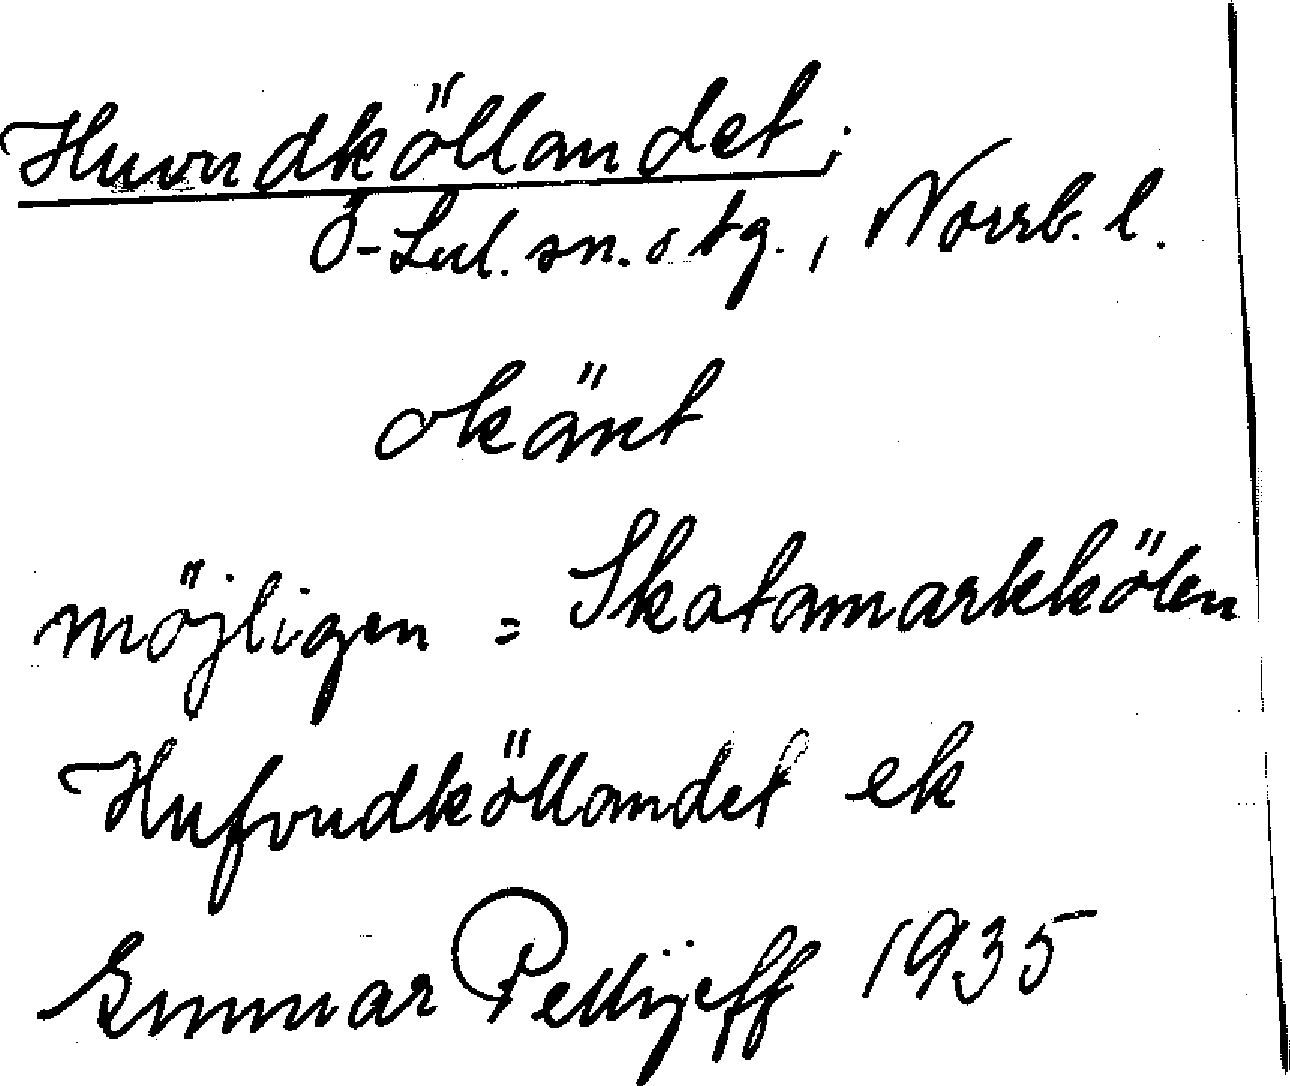 Huvudköllandet;
Ö-Lul. sn. o tg., Norrb. l.
okänt
möjligen = Skatamarkkölen
Hufvudköllandet ek
Gunnar Pellijeff 1935